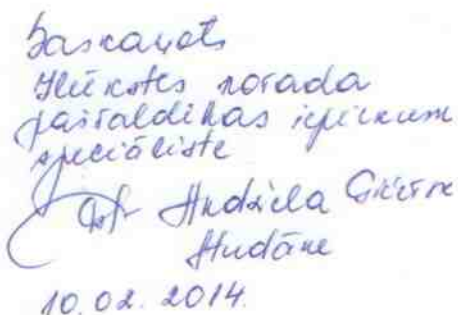 Saskaņots
Ilūkstes novada
pašvaldības iepirkum
speciāliste
Andžela
10.02.2014.